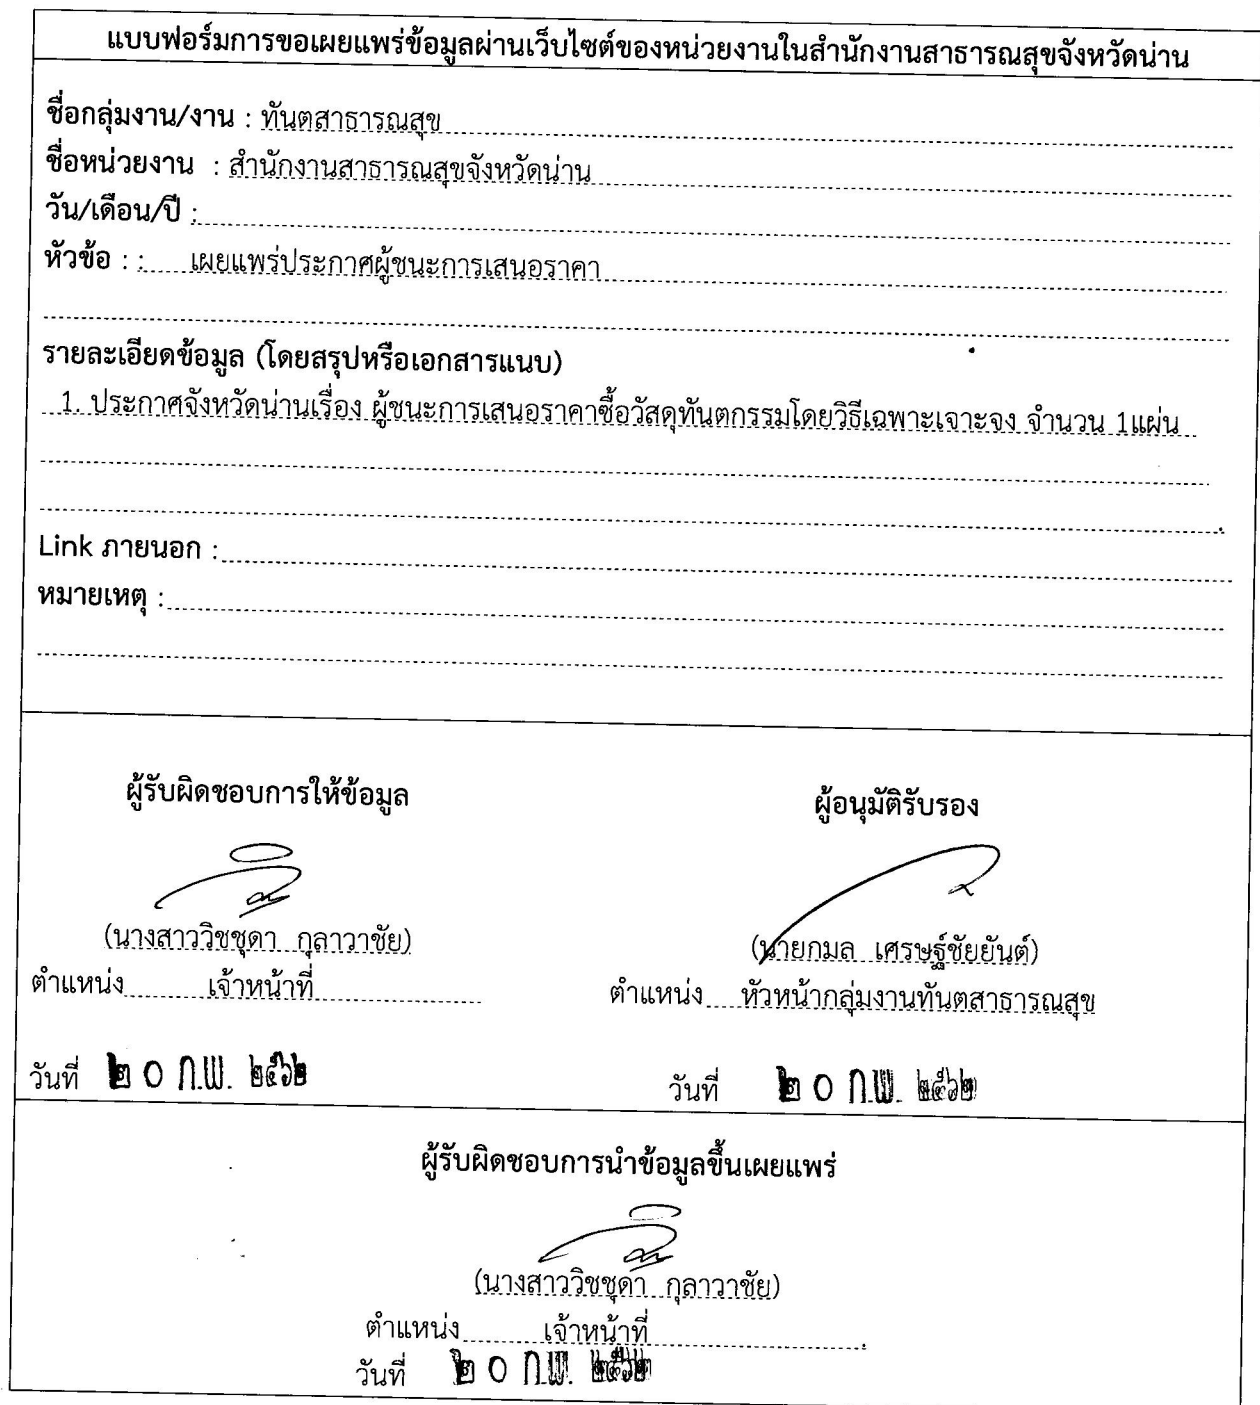 แบบฟอร์มการขอเผยแพร่ข้อมูลผ่านเว็บไซต์ของหน่วยงานในสำนักงานสาธารณสุขจังหวัดน่าน
ชื่อกลุ่มงาน/งาน : ทันตสาธารณสุข
ชื่อหน่วยงาน : สำนักงานสาธารณสุขจังหวัดน่าน
วัน/เดือน/ปี :
หัวข้อ : : เผยแพร่ประกาศผู้ชนะการเสนอราคา
รายละเอียดข้อมูล (โดยสรุปหรือเอกสารแนบ)
1. ประกาศจังหวัดน่านเรื่อง ผู้ชนะการเสนอราคาซื้อวัสดุทันตกรรมโดยวิธีเฉพาะเจาะจง จำนวน 1แผ่น
Link ภายนอก :
หมายเหตุ :
ผู้รับผิดชอบการให้ข้อมูล ผู้อนุมัติรับรอง
(นางสาววิชชุดา กุลาวาชัย) (นายกมล เศรษฐ์ชัยยันต์)
ตำแหน่ง เจ้าหน้าที่ ตำแหน่ง หัวหน้ากลุ่มงานทันตสาธารณสุข
วันที่ ๒๐ ก.พ. ๒๕๖๒ วันที่ ๒๐ ก.พ. ๒๕๖๒
ผู้รับผิดชอบการนำข้อมูลขึ้นเผยแพร่
(นางสาววิชชุดา กุลาวาชัย)
ตำแหน่ง เจ้าหน้าที่
วันที่ ๒๐ ก.พ. ๒๕๖๒